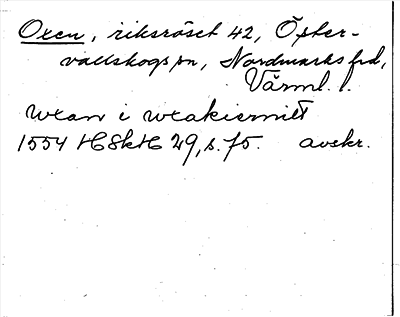 Oxen, riksröset 42, Öster-
vallskogs sn, Nordmarks hd,
Värml. l.
wxan i wxakiernilt
1554 HSkH 29, s. 75. avskr.